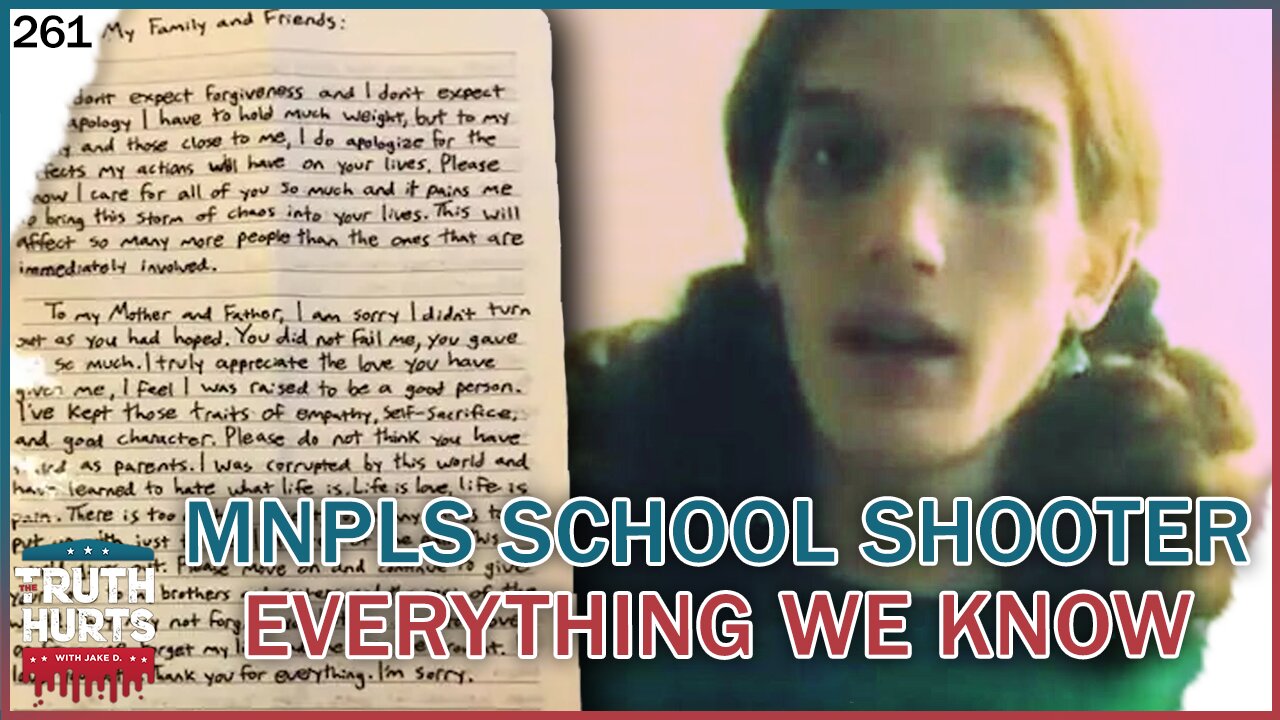 261
My Family and Friends:
don't expect forgiveness and I don't expect
apology I have to hold much weight, but to my
and those close to me, I do apologize for the
my actions will have on your lives. Please
I care for all of you so much and it pains me
bring this storm of chaos into your lives. This will
affect so many more people than the ones that are
immediately involved.
To my Mother and Father, I am sorry I didn't turn
out as you had hoped. You did not fail me, you gave
so much. I truly appreciate the love you have
given me, I feel I was raised to be a good person.
I've kept those traits of empathy, self-sacrifice,
and good character. Please do not think you have
as parents. I was corrupted by this world and
have learned to hate what life is. Life is love, life is
pain. There is too
put up with just
Please move on and continue to give
brothers
not
my
Thank you for everything. I'm sorry.
MNPLS SCHOOL SHOOTER
EVERYTHING WE KNOW
THE
TRUTH
HURTS
WITH JAKE D.